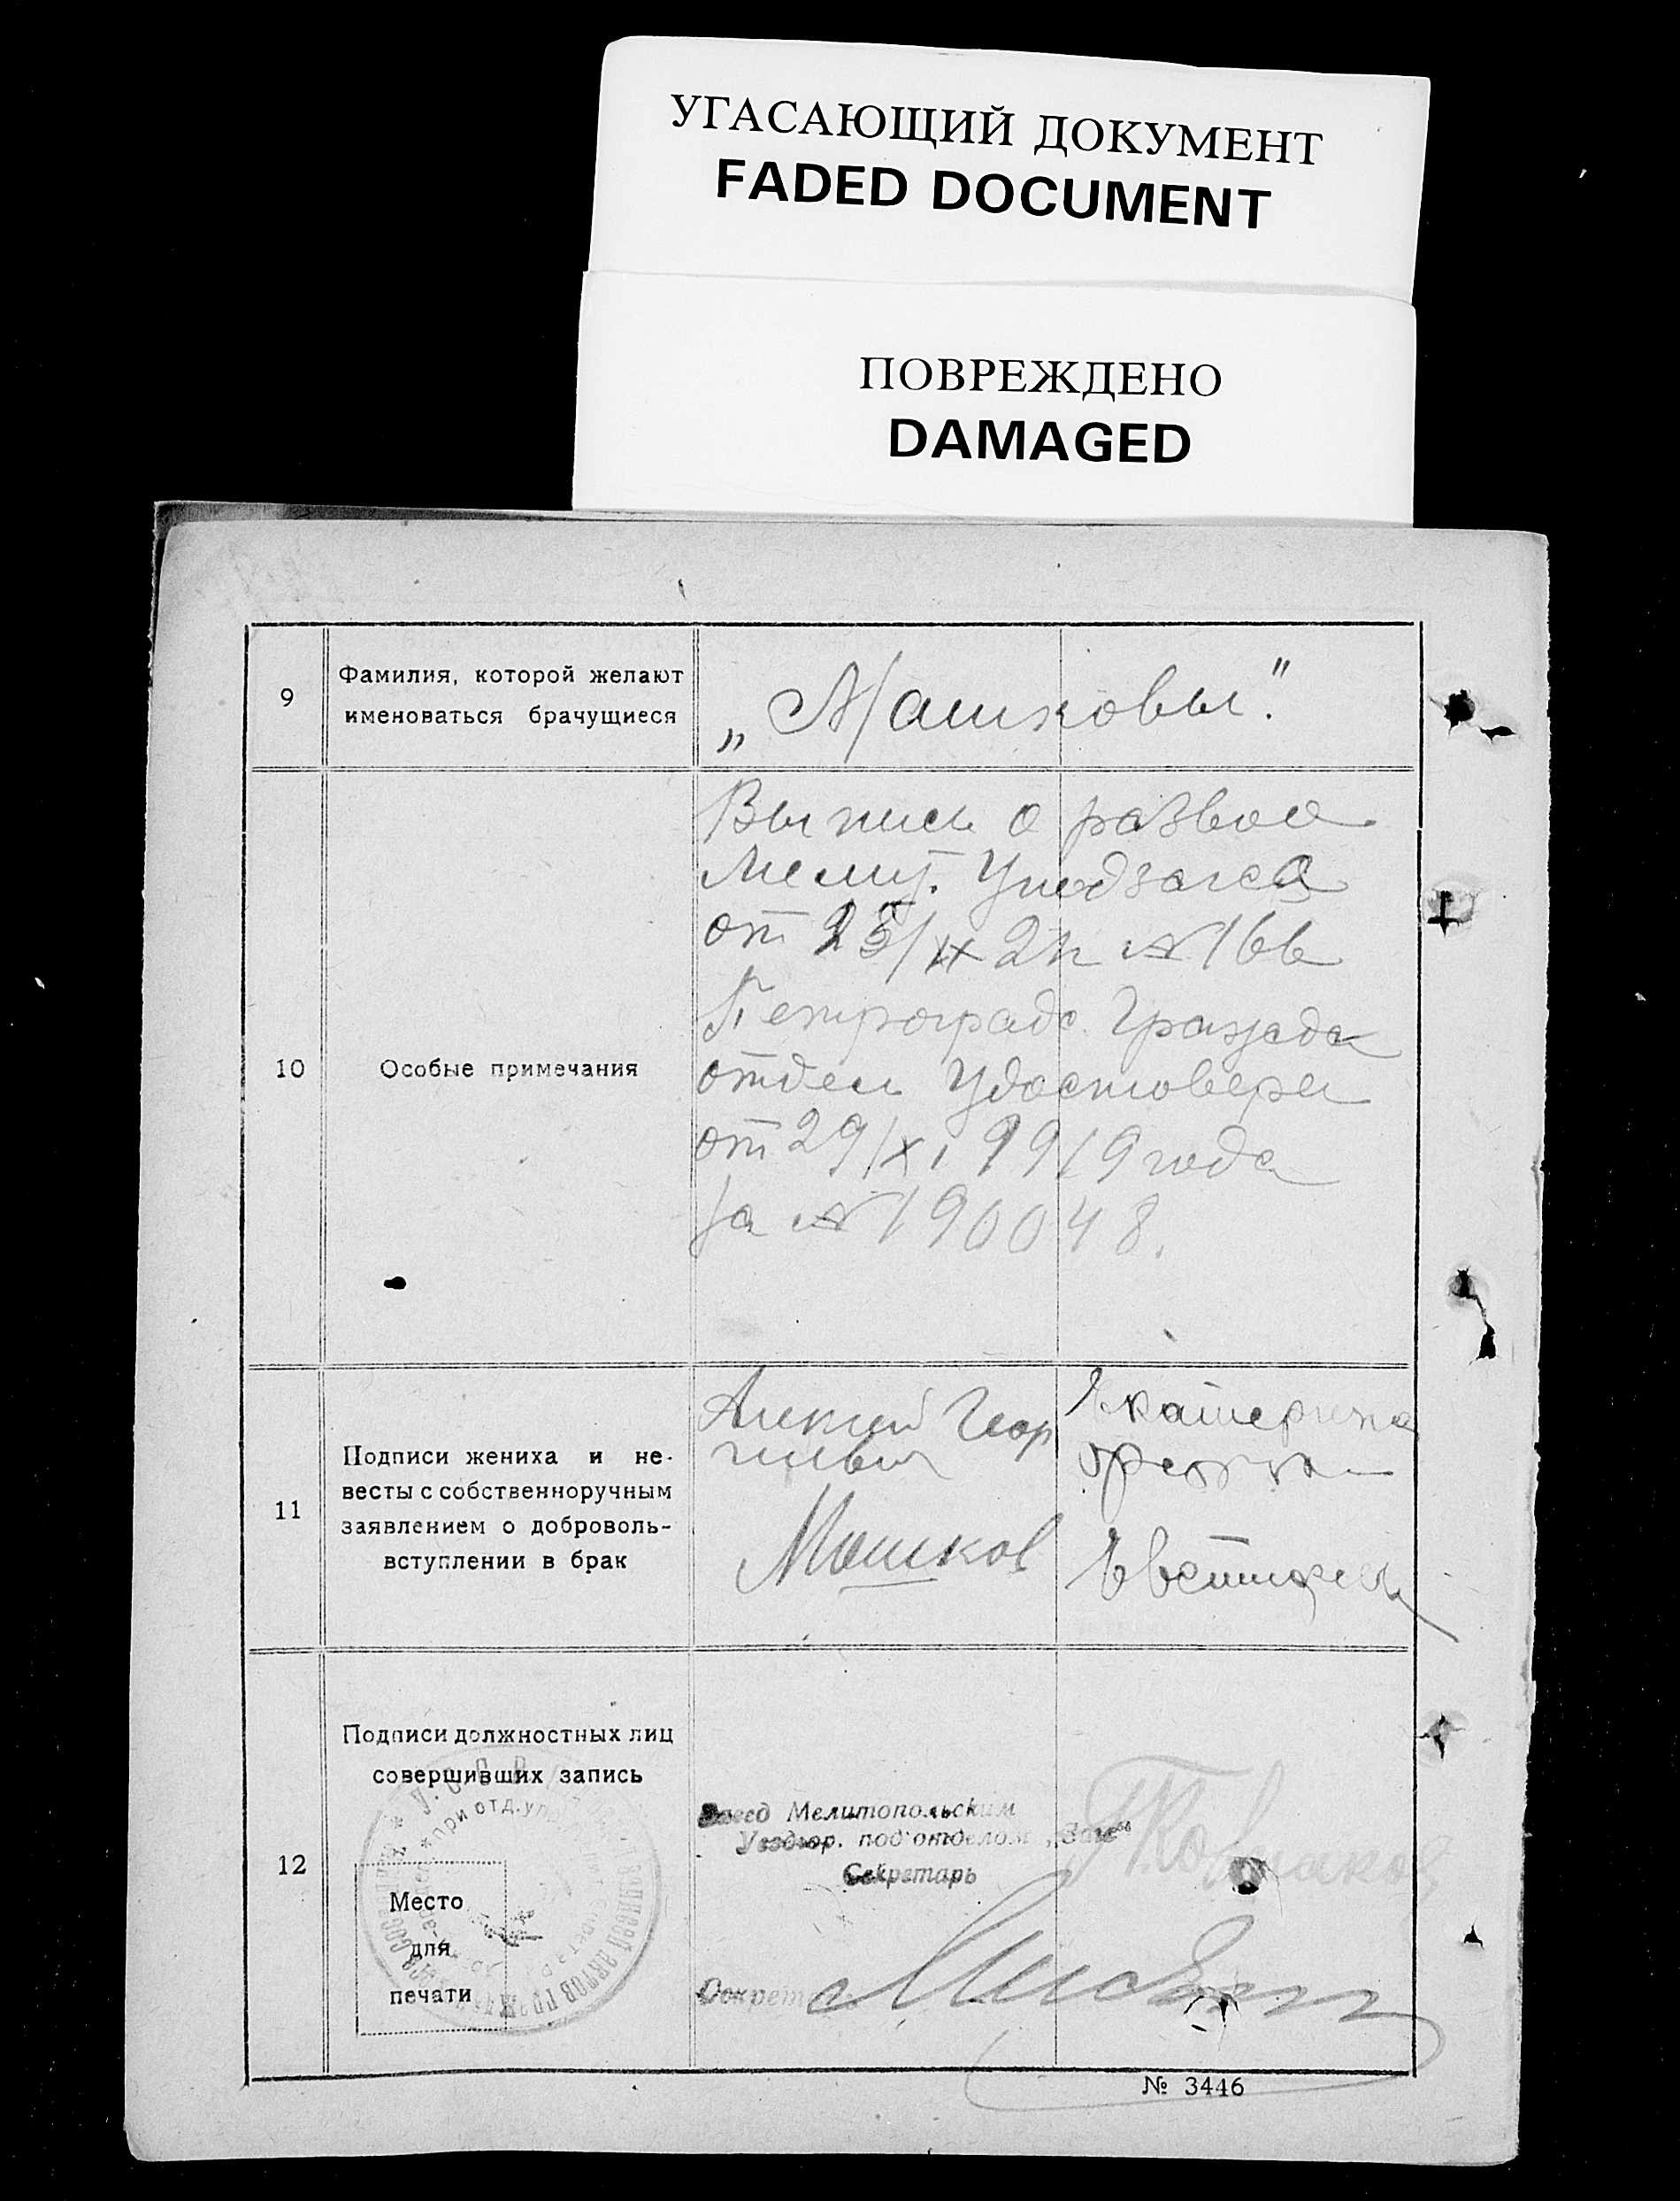 УГАСАЮЩИЙ ДОКУМЕНТ
FADED DOCUMENT
ПОВРЕЖДЕНО
DAMAGED
9
Фамилия, которой желают
именоваться брачущиеся
„Машковы".
10
Особые примечания
Выпись о развое
Мелит.
от 23/IX 21г № 166
Петроградс. Граждан
отдел Удостовере
от 29/XI 1919 года
за № 190048.
11
Подписи жениха и не-
весты с собственноручным
заявлением о доброволь-
вступлении в брак
Алексей Геор
гиевич
Машков
Екатерина
12
Подписи должностных лиц
совершивших запись
при отд.
Место
для
печати
Завед Мелитопольским
Уездгор. под'отделом „Загс"
Секретарь
Секрет
№ 3446